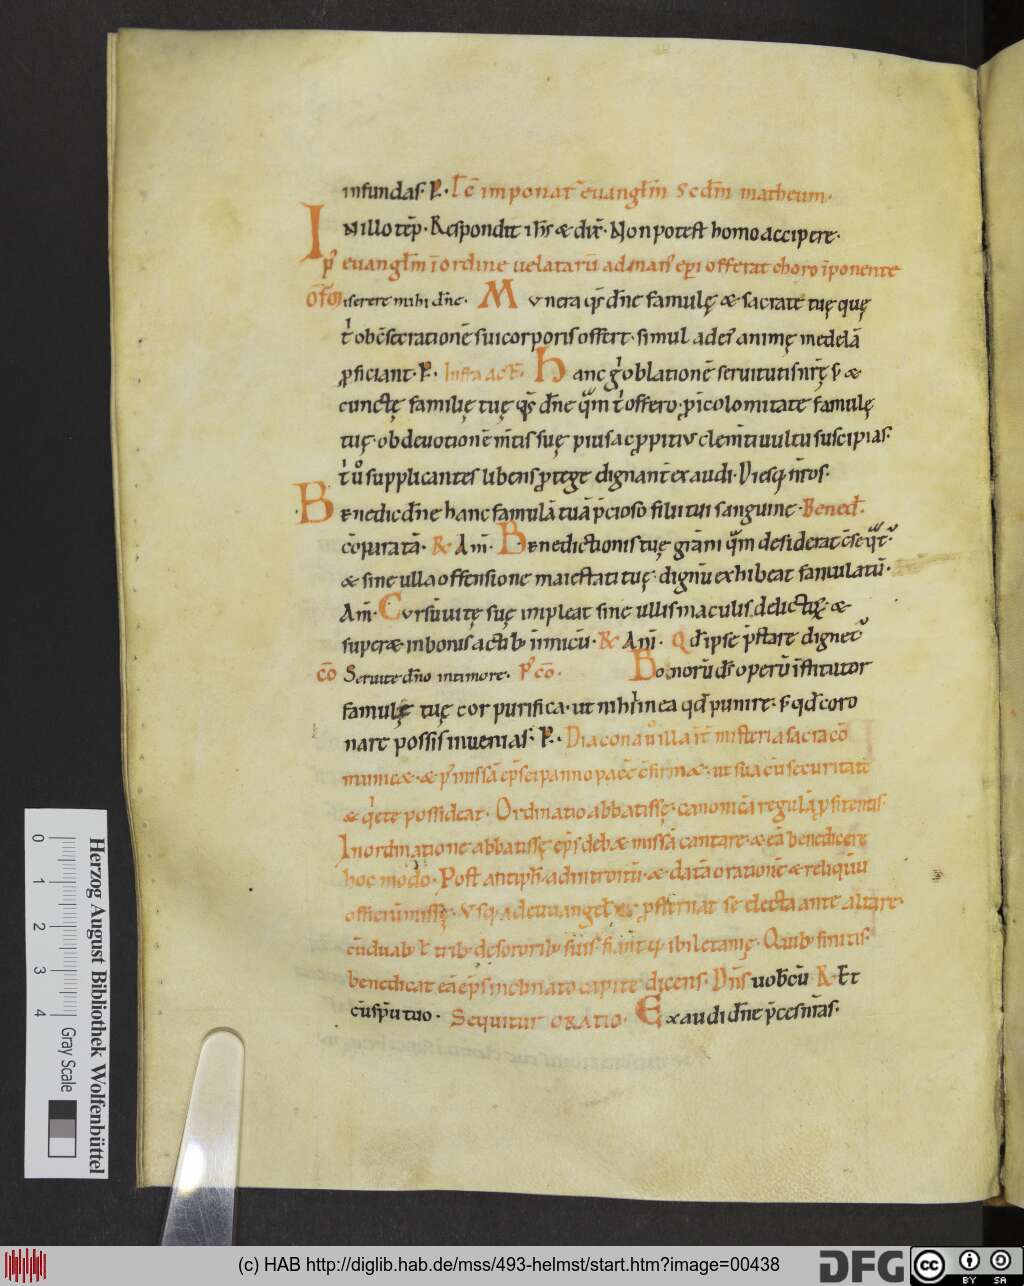 infundas. P. Te imponat euangłm Scdm matheum.
IN illo tep̄. Respondit ihs & dix̄. Non potest homo accipere.
p' euangłm ī ordine uelatarū ad man' ep̄i offerat choro īponente
OF Miserere mihi dn̄e. Munera qs dn̄e famulę & sacratę tuę quę
t' ob c̄secrationē sui corporis offert. simul ad ei' animę medelā
ꝓficiant. P. Infra act̄. Hanc g' oblationē seruitutis nr̄ę s &
cunctę familię tuę qs dn̄e qm t' offero. p īcolomitate famulę
tuę. ob deuotionē m̄tis suę pius ac ꝓpitiꝰ clem̄ti uultu suscipias.
t' u° supplicantes libens ꝓtege dignant̄ exaudi. Diesq nr̄os.
Benedic dn̄e hanc famulā tuā p̄cioso filii tui sanguine. Bened.
c̄paratā. R Am̄. Benedictionis tuę grām qm desiderat c̄seqt'.
& sine ulla offensione maiestati tuę dignū exhibeat famulatū.
Am̄. Cursū uitę suę impleat sine ullis maculis delictoꝝ. &
super& in bonis actib inimicū. R Am̄. Qd ipse p̄stare dignet'
CO Seruite dn̄o in timore. P' co. Bonorū ds operū īstitutor
famulę tuę cor purifica. ut nihil in ea qd punire. s qd coro
nare possis inuenias. P. Diacona u° illa īt misteria sacra cō
munic&. & p' missā ep̄s ei panno pacē c̄firm&. ut sua cū securitate
& q'ete possideat. Ordinatio abbatissę. canonicā regulā ꝓfitentis.
In ordinatione abbatissę ep̄s deb& missā cantare. & eā benedicere
hoc modo. Post antiph. ad introitū. & datā orationē & reliquū
officiū missę. Usq ad euuangeł. prosternat se electa ante altare.
cū duab ł trib de sororib suis. fiantq ibi letanię. Quib finitis.
benedicat eā ep̄s inclinato capite dicens. Dn̄s uobcū R Et
cū sp̄u tuo. Sequitur oratio. Exaudi dn̄e p̄ces nr̄as.
0 1 2 3 4
Gray Scale
Herzog August Bibliothek Wolfenbüttel
(c) HAB http://diglib.hab.de/mss/493-helmst/start.htm?image=00438
DFG
cc
BY SA